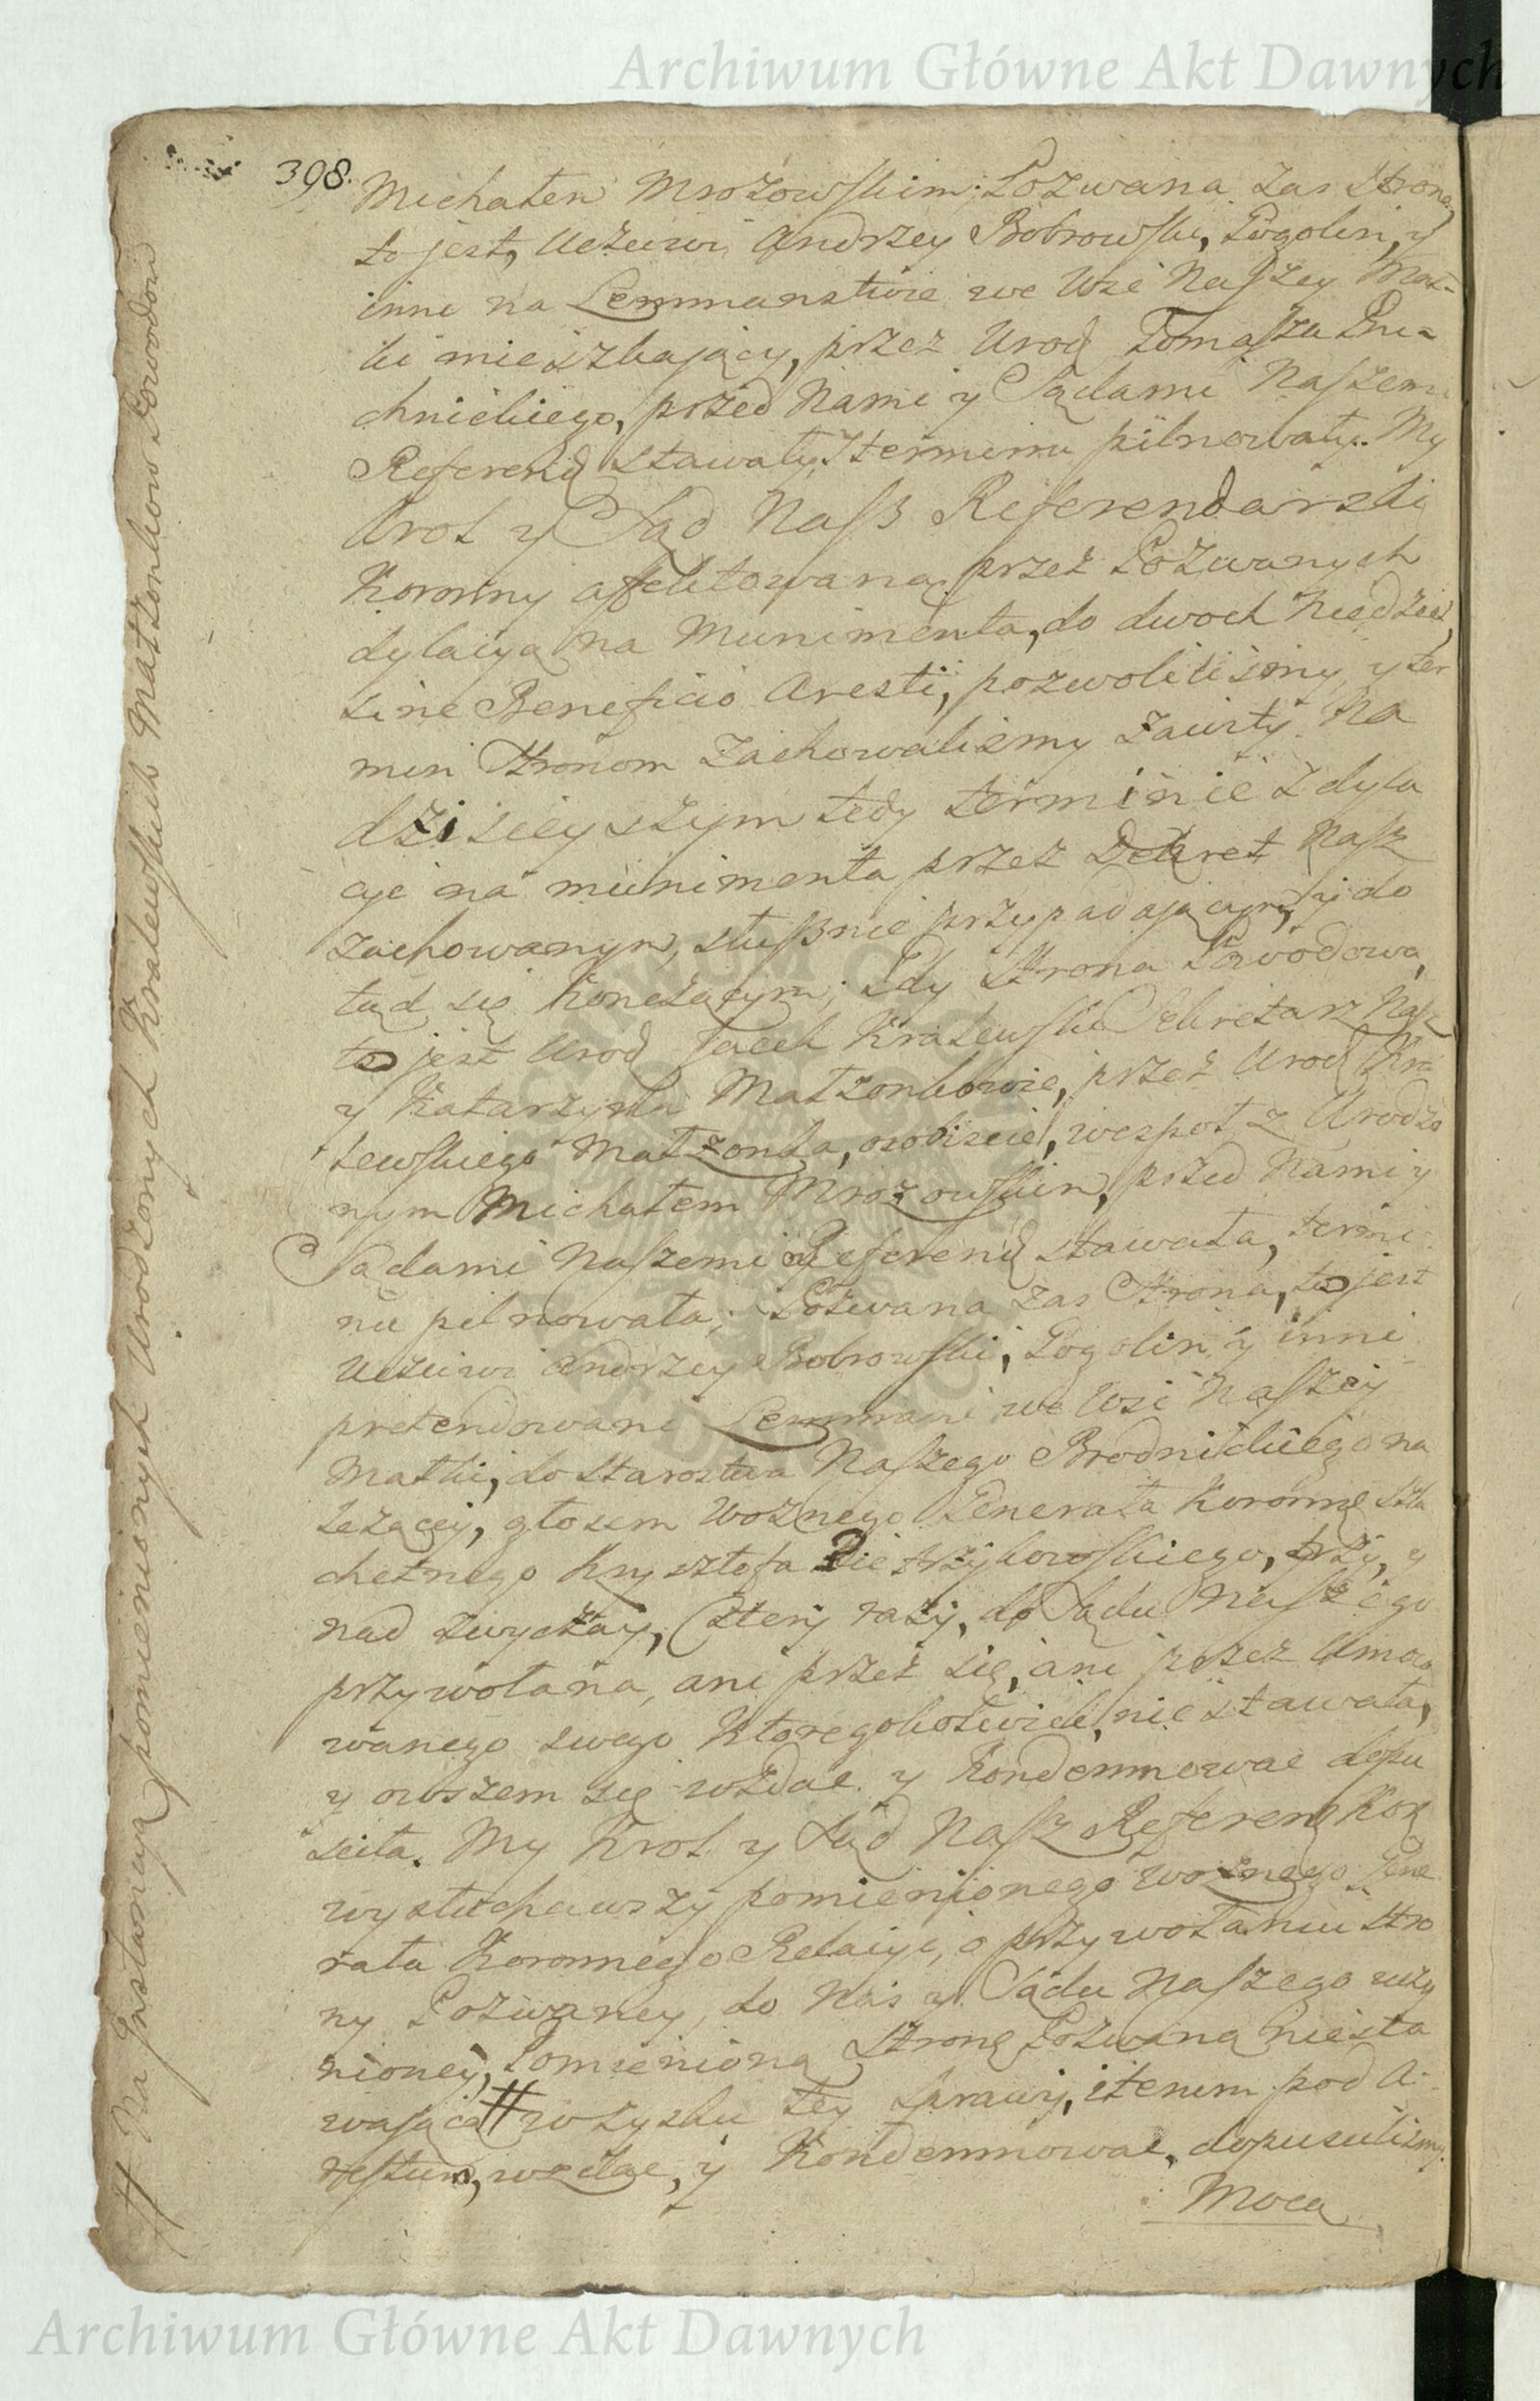 Archiwum Główne Akt Dawnych
398.
Michałem Mrozowskim; Pozwana zas Strona,
to jest, Uczciwi Andrzey Bobrowski, Pogolin, y
inni na Lemmanstwie we Wsi Naszey Mat-
ki mieszkający, przez Urod Tomasza Pru-
chnickiego, przed Nami y Sądami Naszemi
Referend stawały, terminu pilnowały. My
Krol y Sąd Nasz Referendarski
Koronny affektowaną przez Pozwanych
dylacyą na Munimenta, do dwoch Niedziel,
sine Beneficio Aresti, pozwolilismy, y ter
min Stronom zachowalismy zawity. Na
dzisieyszym tedy terminie z dyla
cyi na munimenta przez Dekret Nasz
zachowanym, słusznie przypadającym, y do
tąd się konczącym; Gdy Strona Powodowa,
to jest Urod Jacek Kralewski Sekretarz Nasz
y Katarzyna Małzonkowie, przez Urod Kra
lewskiego Małzonka, osobiscie, wespoł z Urodzo
nym Michałem Mrozowskim, przed Nami y
Sądami Naszemi Referend stawała, termi
nu pilnowała; Pozwana zas Strona, to jest
Uczciwi Andrzey Bobrowski, Pogolin, y inni
pretendowani Lemmani we Wsi Naszey
Matki, do Starostwa Naszego Brodnickiego na
lezącey, głosem Woznego Generała Koronne Szla
chetnego Krysztofa Pietrzykowskiego, trzy, y
nad zwyczay, cztery razy, do Sądu Naszego
przywołana, ani przez się, ani przez Umoco
wanego swego ktoregokolwiek, nie stawała,
y owszem się wzdac y Kondemnowac dopu
sciła. My Krol y Sąd Nasz Referend Kor
wysłuchawszy pomienionego Woznego Gene
rała Koronnego Relacyi, o przywołaniu Stro
ny Pozwaney, do Nas y Sądu Naszego uczy
nioney, Pomienioną Stronę Pozwaną niesta
wającą # w zysku tey sprawy, iterum pod A-
restum, wzdac, y Kondemnowac, dopuscilismy.
Mocą
# Na Instancyą pomienionych Urodzonych Kralewskich Małzonkow Powodow
Archiwum Główne Akt Dawnych